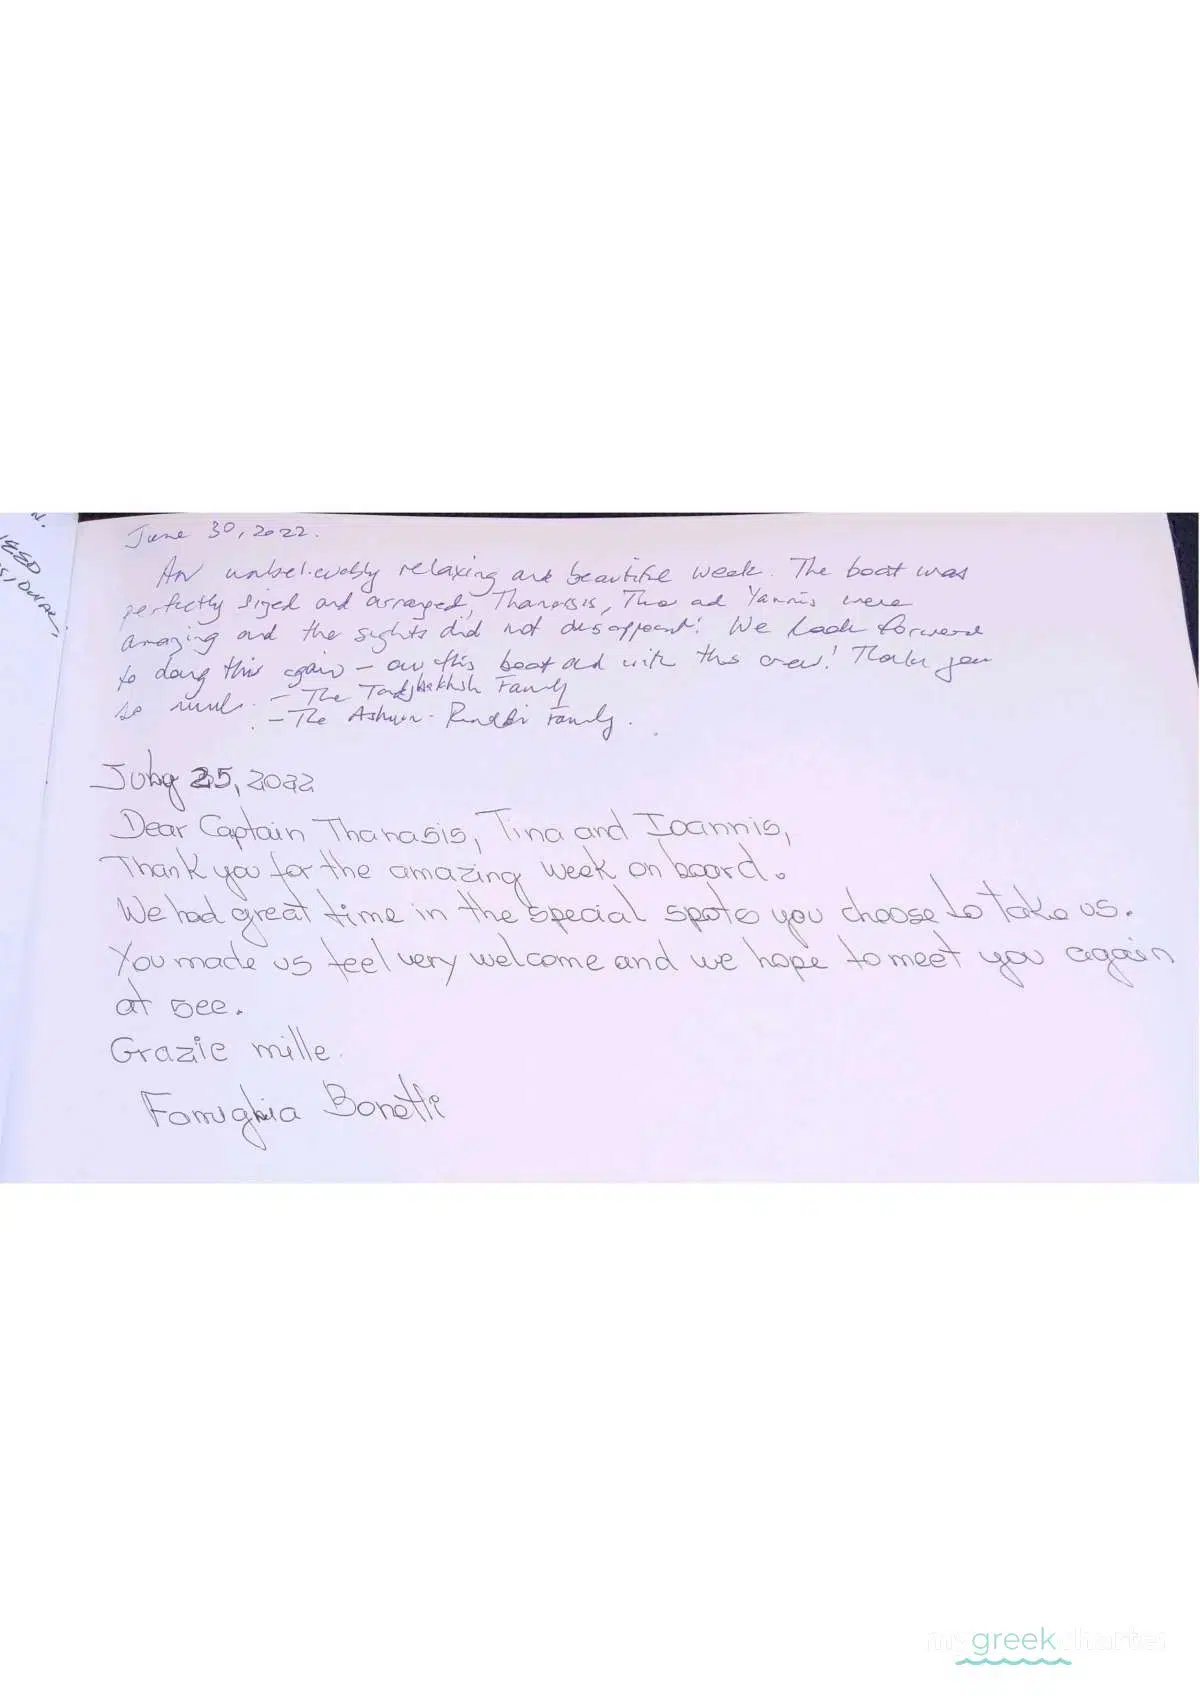 N.
June 30, 2022.
An unbelievably relaxing and beautiful week. The boat was
perfectly sized and arranged, Thanassis, Tina and Yannis were
amazing and the sights did not disappoint! We look forward
to doing this again – on this boat and with this crew! Thank you
so much. – The Tadjbakhsh Family
– The Family.
July 25, 2022
Dear Captain Thanasis, Tina and Ioannis,
Thank you for the amazing week on board.
We had great time in the special spots you choose to take us.
You made us feel very welcome and we hope to meet you again
at see.
Grazie mille.
Famiglia Bonetti
my greek charter